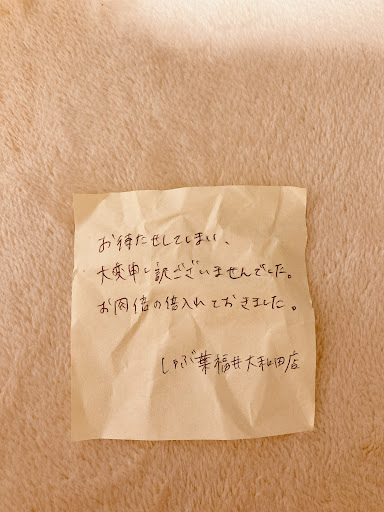 お待たせしてしまい、
大変申し訳ございませんでした。
お肉倍の倍入れておきました。
しゃぶ葉福井大和田店